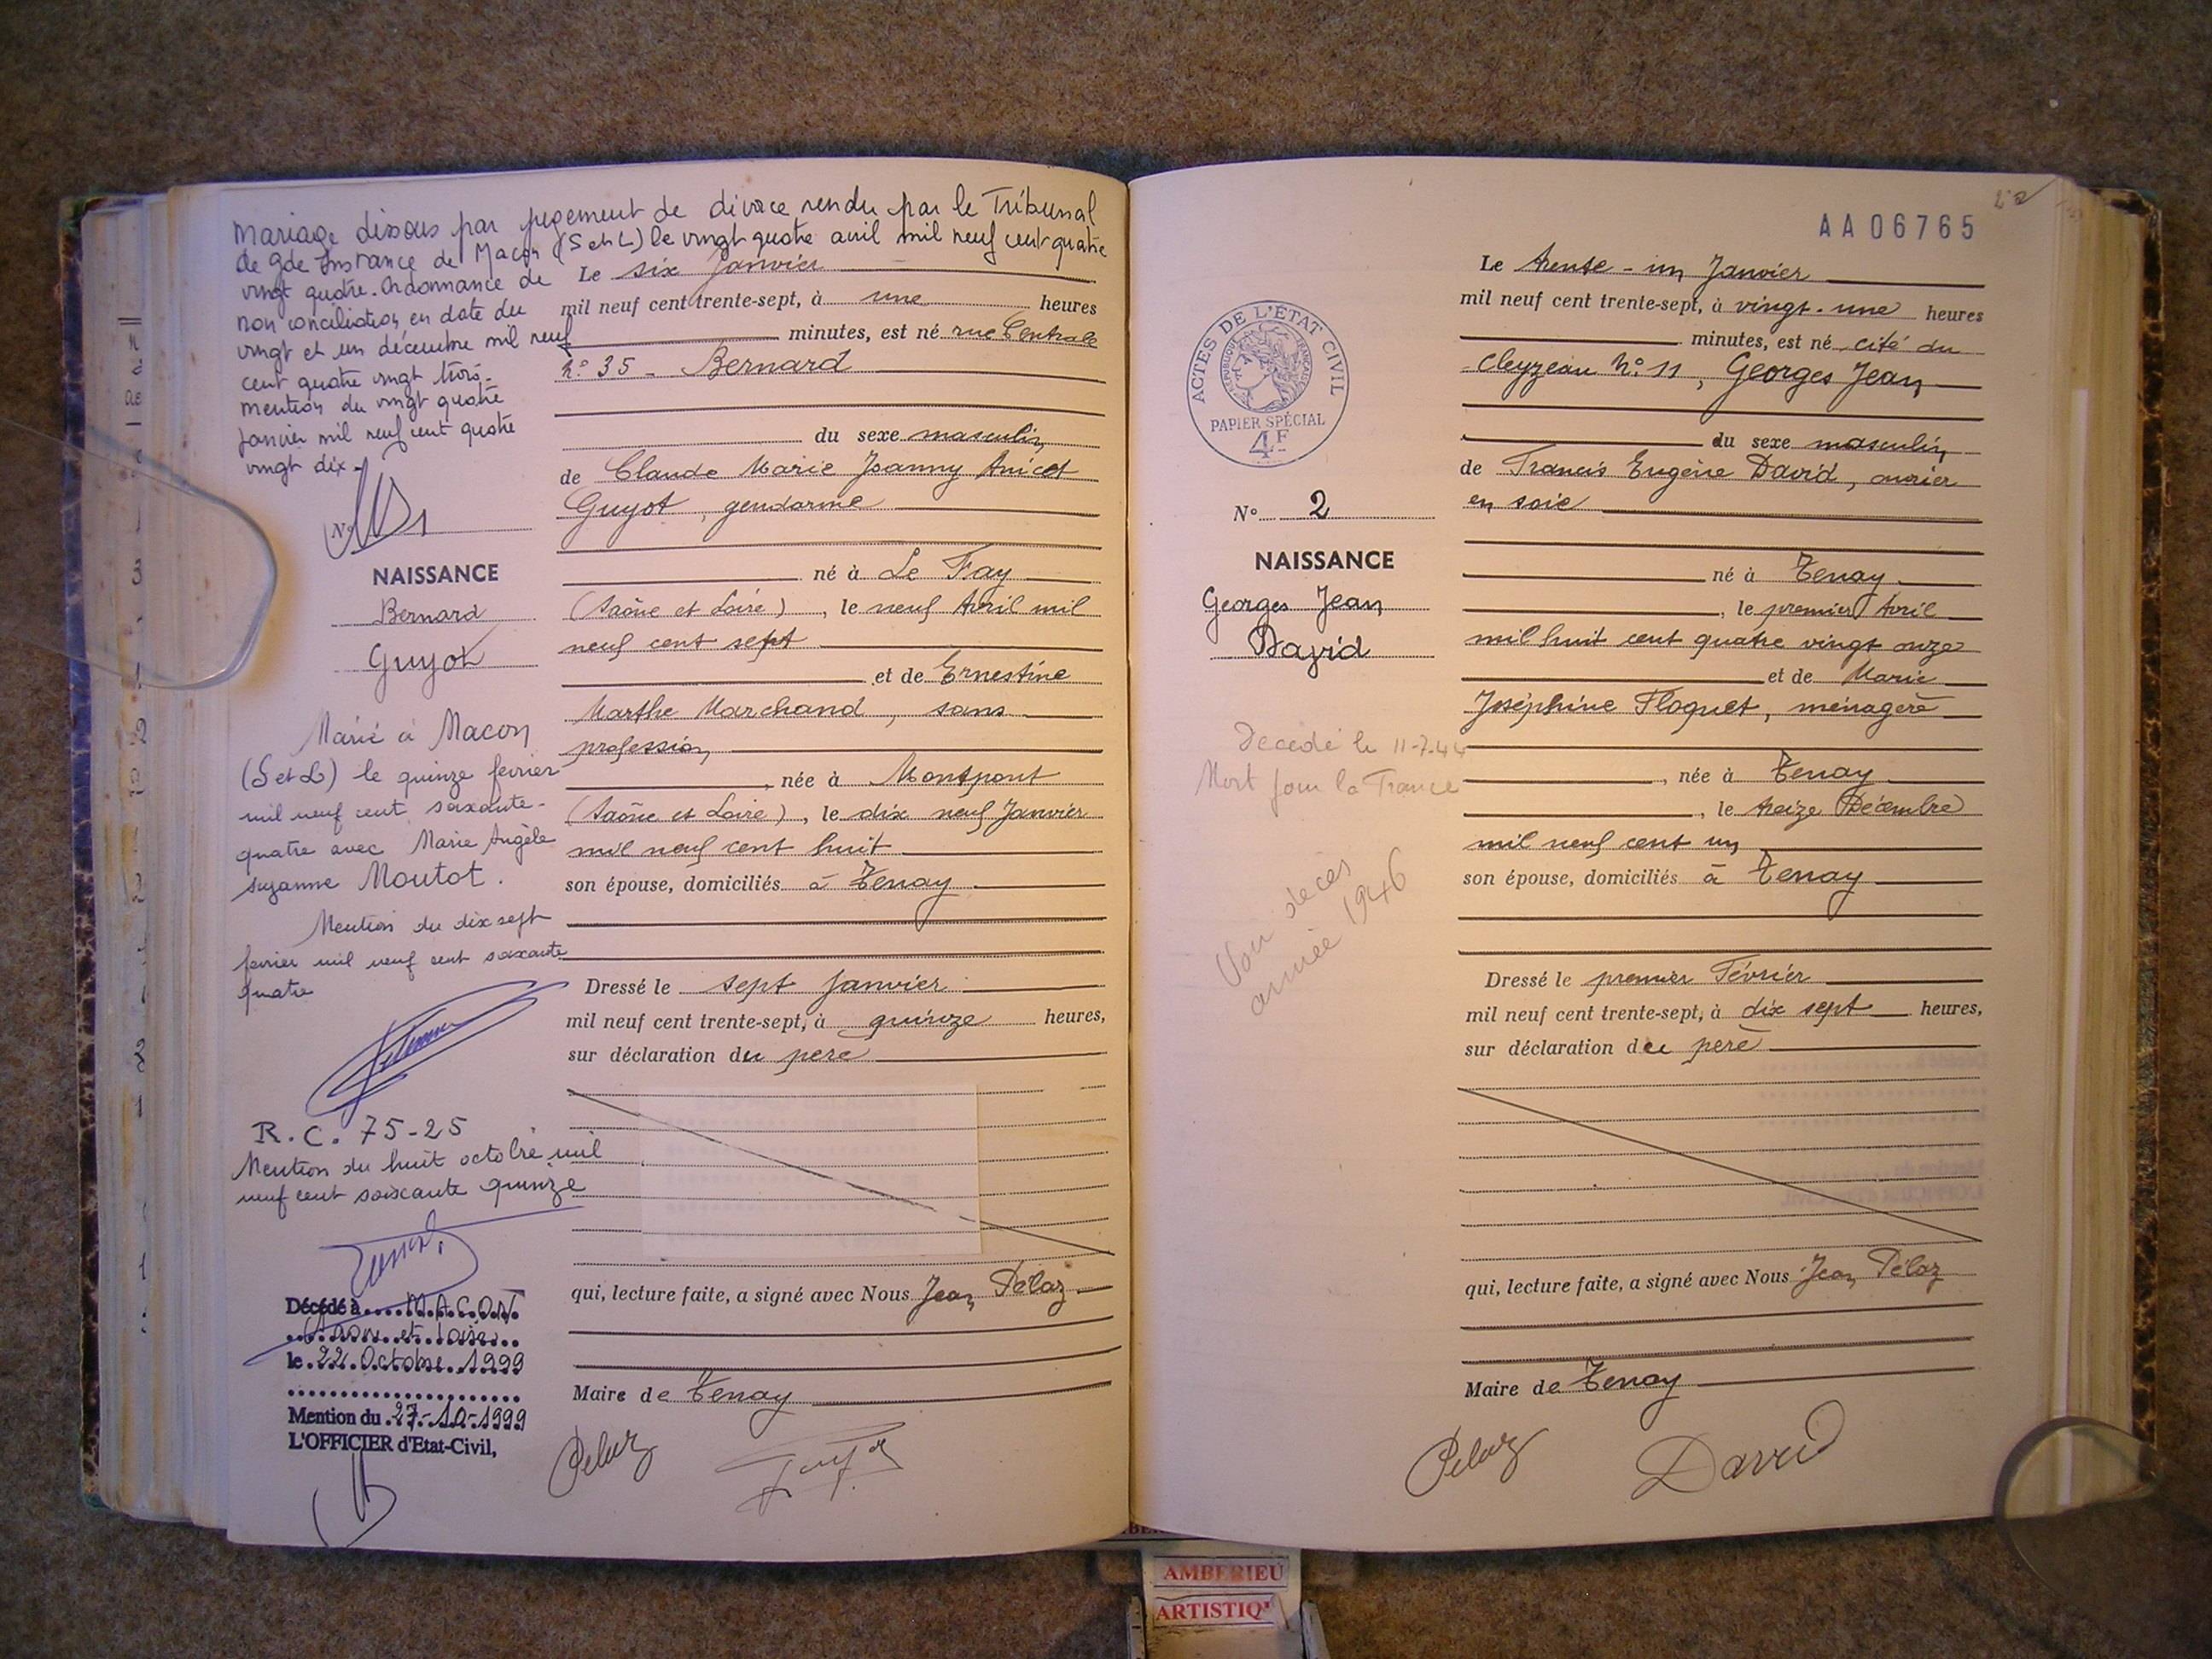 Mariage dissous par jugement de divorce rendu par le Tribunal
de gde Instance de Macon (S et L) le vingt quatre avril mil neuf cent quatre
vingt quatre. Ordonnance de
non conciliation en date du
vingt et un décembre mil neuf
cent quatre vingt trois.
mention du vingt quatre
janvier mil neuf cent quatre
vingt dix.
N° 1
NAISSANCE
Bernard
Guyot
Marié à Macon
(S et L) le quinze fevrier
mil neuf cent soixante-
quatre avec Marie Angèle
suzanne Moutot.
Mention du dix sept
fevrier mil neuf cent soixante
quatre
R.C. 75-25
Mention du huit octobre mil
neuf cent soixante quinze
Décédé à MACON
Saone et Loire
le 22 Octobre 1999
Mention du 27-10-1999
L'OFFICIER d'Etat-Civil,
Le six Janvier
mil neuf cent trente-sept, à une heures
minutes, est né rue Centrale
n° 35 - Bernard
du sexe masculin
de Claude Marie Joanny Anicet
Guyot, gendarme
né à Le Fay
(Saône et Loire), le neuf Avril mil
neuf cent sept
et de Ernestine
Marthe Marchand, sans
profession
, née à Montpont
(Saône et Loire), le dix neuf Janvier
mil neuf cent huit
son épouse, domiciliés à Tenay
Dressé le sept Janvier
mil neuf cent trente-sept, à quinze heures,
sur déclaration du père
qui, lecture faite, a signé avec Nous Jean Pélaz
Maire de Tenay
Pelaz
AA06765
ACTES DE L'ÉTAT CIVIL
RÉPUBLIQUE FRANÇAISE
PAPIER SPÉCIAL
4F
N° 2
NAISSANCE
Georges Jean
David
Décédé le 11-7-44
Mort pour la France
Voir décès
année 1946
Le trente-un Janvier
mil neuf cent trente-sept, à vingt-une heures
minutes, est né cité du
Cleyzeau n° 11, Georges Jean
du sexe masculin
de Francis Eugène David, ouvrier
en soie
né à Tenay
, le premier Avril
mil huit cent quatre vingt onze
et de Marie
Joséphine Floquet, ménagère
, née à Tenay
, le treize Décembre
mil neuf cent un
son épouse, domiciliés à Tenay
Dressé le premier Février
mil neuf cent trente-sept, à dix sept heures,
sur déclaration du père
qui, lecture faite, a signé avec Nous Jean Pélaz
Maire de Tenay
Pelaz David
AMBERIEU
ARTISTIQ